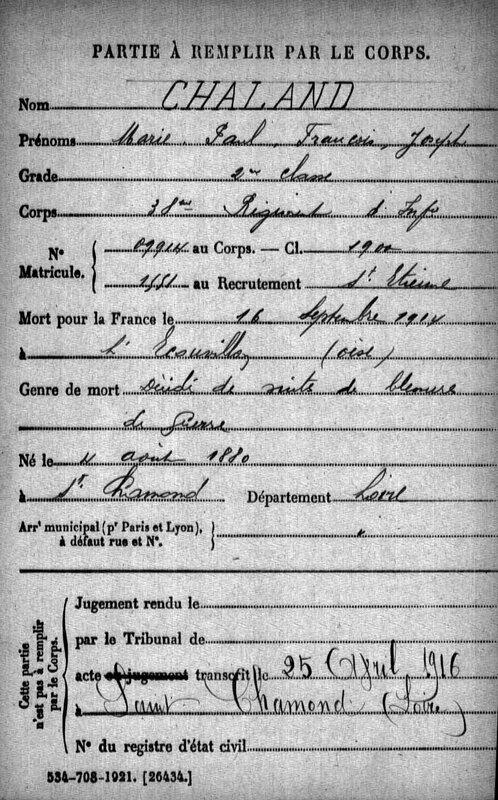 PARTIE À REMPLIR PAR LE CORPS.
Nom CHALAND
Prénoms Marie, Paul, Francois, Joseph
Grade 2me classe
Corps 38me Régiment d'Infie
No Matricule. 09914 au Corps. — Cl. 1900
1551 au Recrutement St Etienne
Mort pour la France le 16 Septembre 1914
à l'Ecouvillon (oise)
Genre de mort Décédé de suite de blessure
de guerre
Né le 4 août 1880
à St Chamond Département Loire
Arrt municipal (pr Paris et Lyon), "
à défaut rue et No.
Cette partie n'est pas à remplir par le Corps.
Jugement rendu le
par le Tribunal de
acte ou jugement transcrit le 25 Avril 1916
à Saint Chamond (Loire)
No du registre d'état civil
534-708-1921. [26434.]